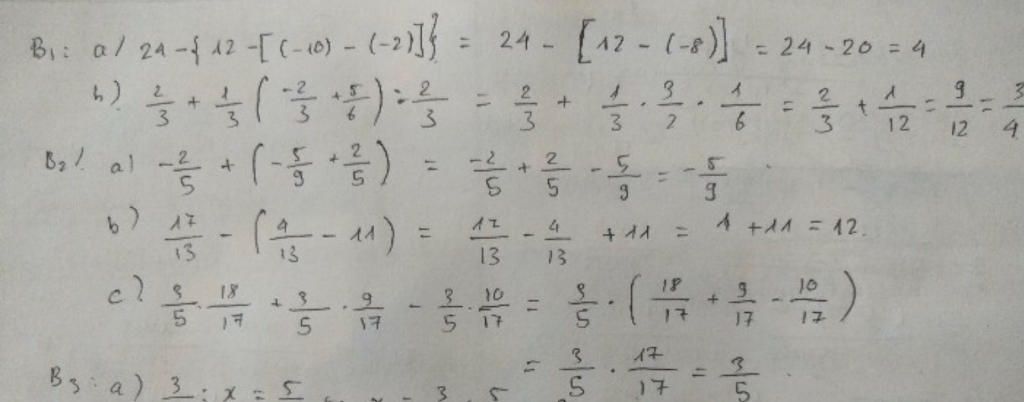 B1: a/ 24 - { 12 - [(-10) - (-2)]} = 24 - [12 - (-8)] = 24 - 20 = 4
b) 2/3 + 1/3 ( -2/3 + 5/6 ) : 2/3 = 2/3 + 1/3 · 3/2 · 1/6 = 2/3 + 1/12 = 9/12 = 3/4
B2: a) -2/5 + ( -5/9 + 2/5 ) = -2/5 + 2/5 - 5/9 = -5/9
b) 17/13 - ( 4/13 - 11 ) = 17/13 - 4/13 + 11 = 1 + 11 = 12.
c) 3/5 · 18/17 + 3/5 · 9/17 - 3/5 · 10/17 = 3/5 · ( 18/17 + 9/17 - 10/17 )
= 3/5 · 17/17 = 3/5
B3: a) 3 : x = 5